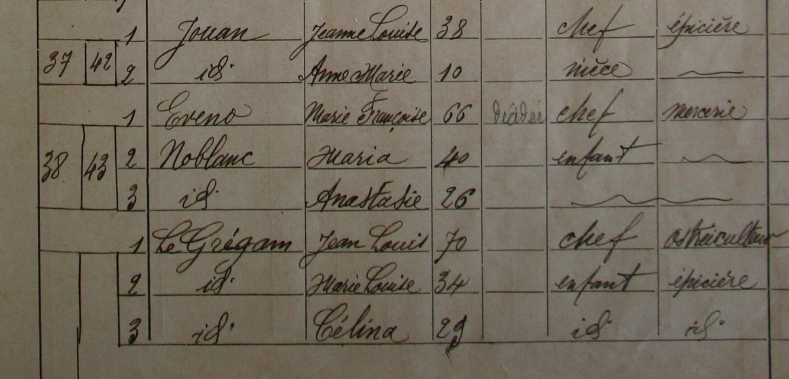 1 Jouan Jeanne Louise 38 chef épicière
37 42 2 id. Anne Marie 10 nièce
1 Eveno Marie Françoise 66 chef mercerie
38 43 2 Noblanc Maria 40 enfant
3 id. Anastasie 26
1 Le Grégam Jean Louis 70 chef ostréiculteur
2 id. Marie Louise 34 enfant épicière
3 id. Célina 29 id. id.